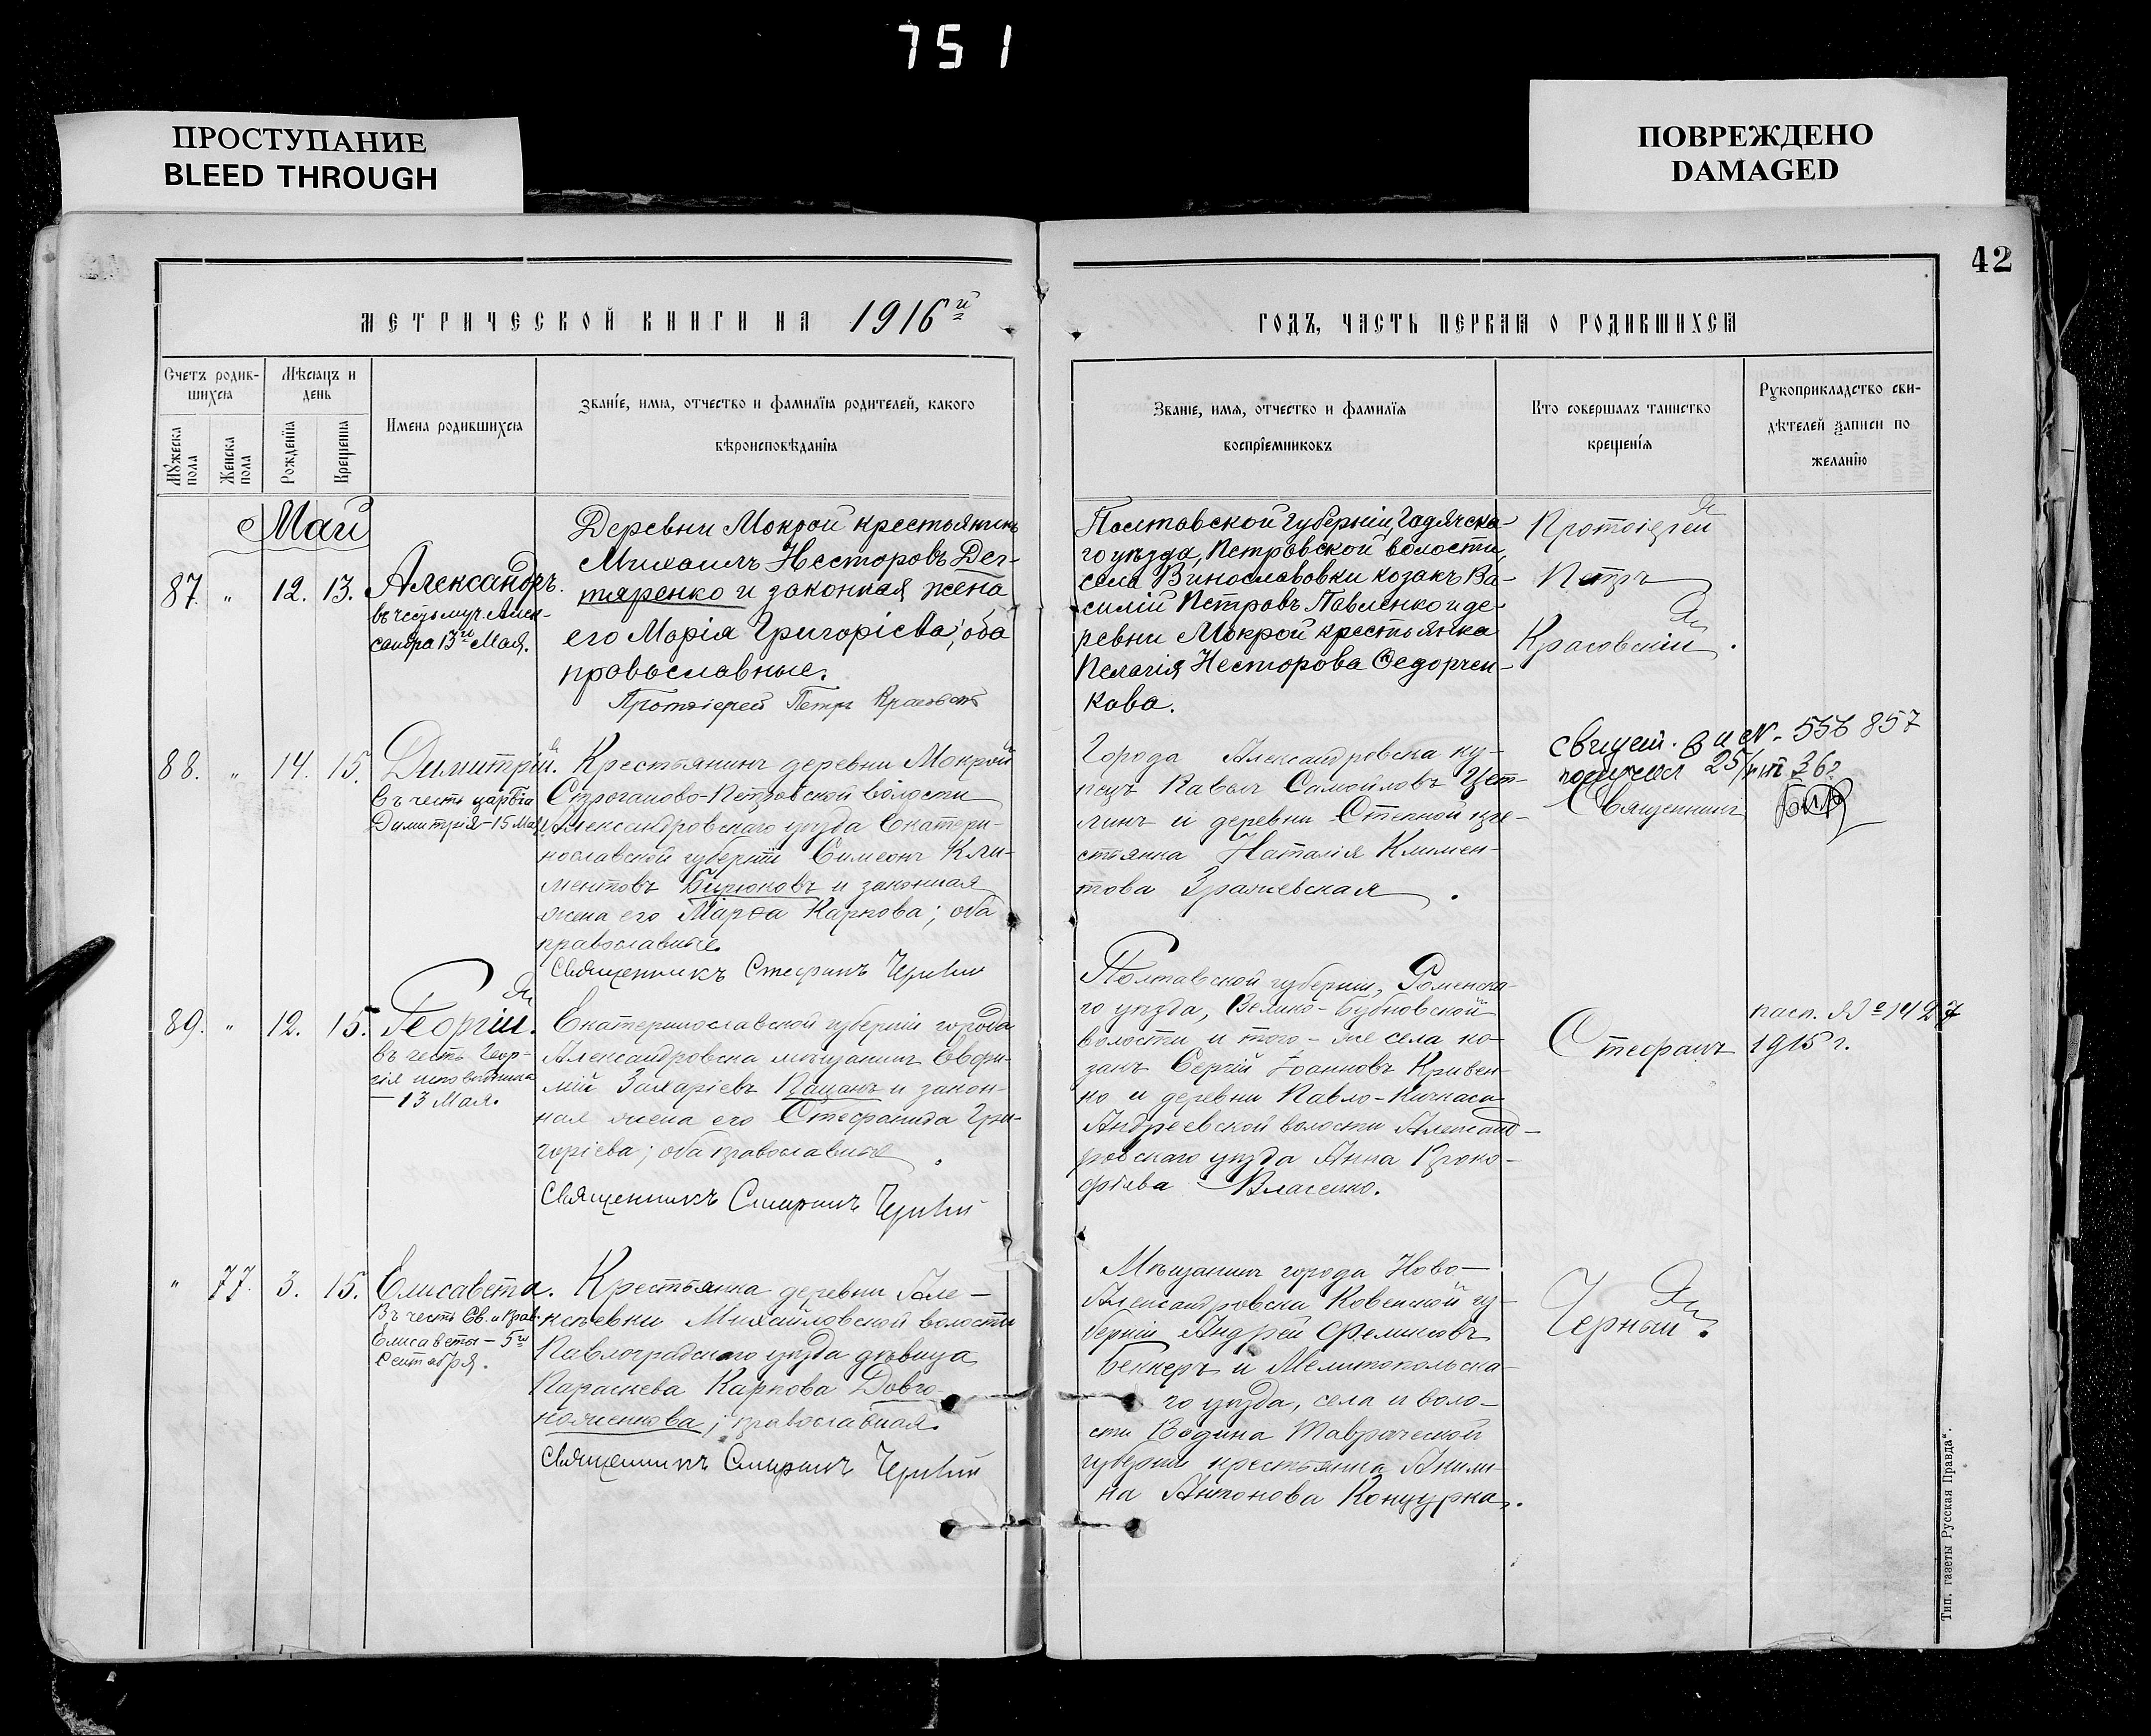 751
ПРОСТУПАНИЕ
BLEED THROUGH
ПОВРЕЖДЕНО
DAMAGED
42
МЕТРИЧЕСКОЙ КНИГИ НА 1916й
ГОДЪ, ЧАСТЬ ПЕРВАЯ О РОДИВШИХСЯ
Счетъ родив-
шихся
Мѣсяцъ и
день
Мужеска
пола
Женска
пола
Рожденія
Крещенія
Имена родившихся
Званіе, имя, отчество и фамилія родителей, какого
вѣроисповѣданія
Званіе, имя, отчество и фамилія
воспріемниковъ
Кто совершалъ таинство
крещенія
Рукоприкладство сви-
дѣтелей записи по
желанію
Май
87. " 12. 13. Александръ.
въ честь муч. Алек-
сандра 13го Мая.
Деревни Мокрой крестьянинъ
Михаилъ Несторовъ Дег-
тяренко и законная жена
его Марія Григоріева; оба
православные.
Протоіерей Петръ
Полтавской губерніи, Гадячска-
го уѣзда, Петровской волости,
села Винославовки козакъ Ва-
силій Петровъ Павленко и де-
ревни Мокрой крестьянка
Пелагія Несторова Ѳедорчен-
кова.
Протоіерей
Петръ
Красовскій.
88. " 14. 15. Димитрій.
въ честь царвіа
Димитрія-15 Мая
Крестьянинъ деревни Мокрой
Строганово-Петровской волости
Александровскаго уѣзда Екатери-
нославской губерніи Симеонъ Кли-
ментовъ Бирюковъ и законная
жена его Марѳа Карпова; оба
православные.
Священникъ Стефанъ Черный
Города Александровска ку-
пецъ Павелъ Самойловъ Цет-
линъ и деревни Степной кре-
стьянка Наталія Климен-
това
свидет. № 856 857
получил 25/ 36г
Священникъ
89. " 12. 15. Георгій.
въ честь Геор-
гія исповѣдника
- 13 Мая.
Екатеринославской губерніи города
Александровска мѣщанинъ Евфи-
мій Захаріевъ Пацанъ и закон-
ная жена его Стефанида Гри-
горіева; оба православные.
Священникъ Стефанъ Черный
Полтавской губерніи, Роменска-
го уѣзда, Велико-Бубновской
волости и того-же села ко-
закъ Сергій Іоанновъ Кривен-
ко и деревни Павло-Кичкаса
Андреевской волости Александ-
ровскаго уѣзда Анна Проко-
фіева Власенко.
Стефанъ
пасп. № 1427
1915 г.
" 77. 3. 15. Елисавета.
Въ честь Св. и Прав.
Елисаветы - 5го
Сентября.
Крестьянка деревни Але-
ксѣевки Михайловской волости
Павлоградскаго уѣзда дѣвица
Параскева Карпова Довго-
ноженкова; православная.
Священникъ Стефанъ Черный
Мѣщанинъ города Ново-
Александровска Ковенской гу-
берніи Андрей Феликсовъ
Беккеръ и Мелитопольска-
го уѣзда, села и воло-
сти Водяна Таврической
губерніи крестьянка Акили-
на Антонова Коцурка.
Черный.
Тип. газеты „Русская Правда“.